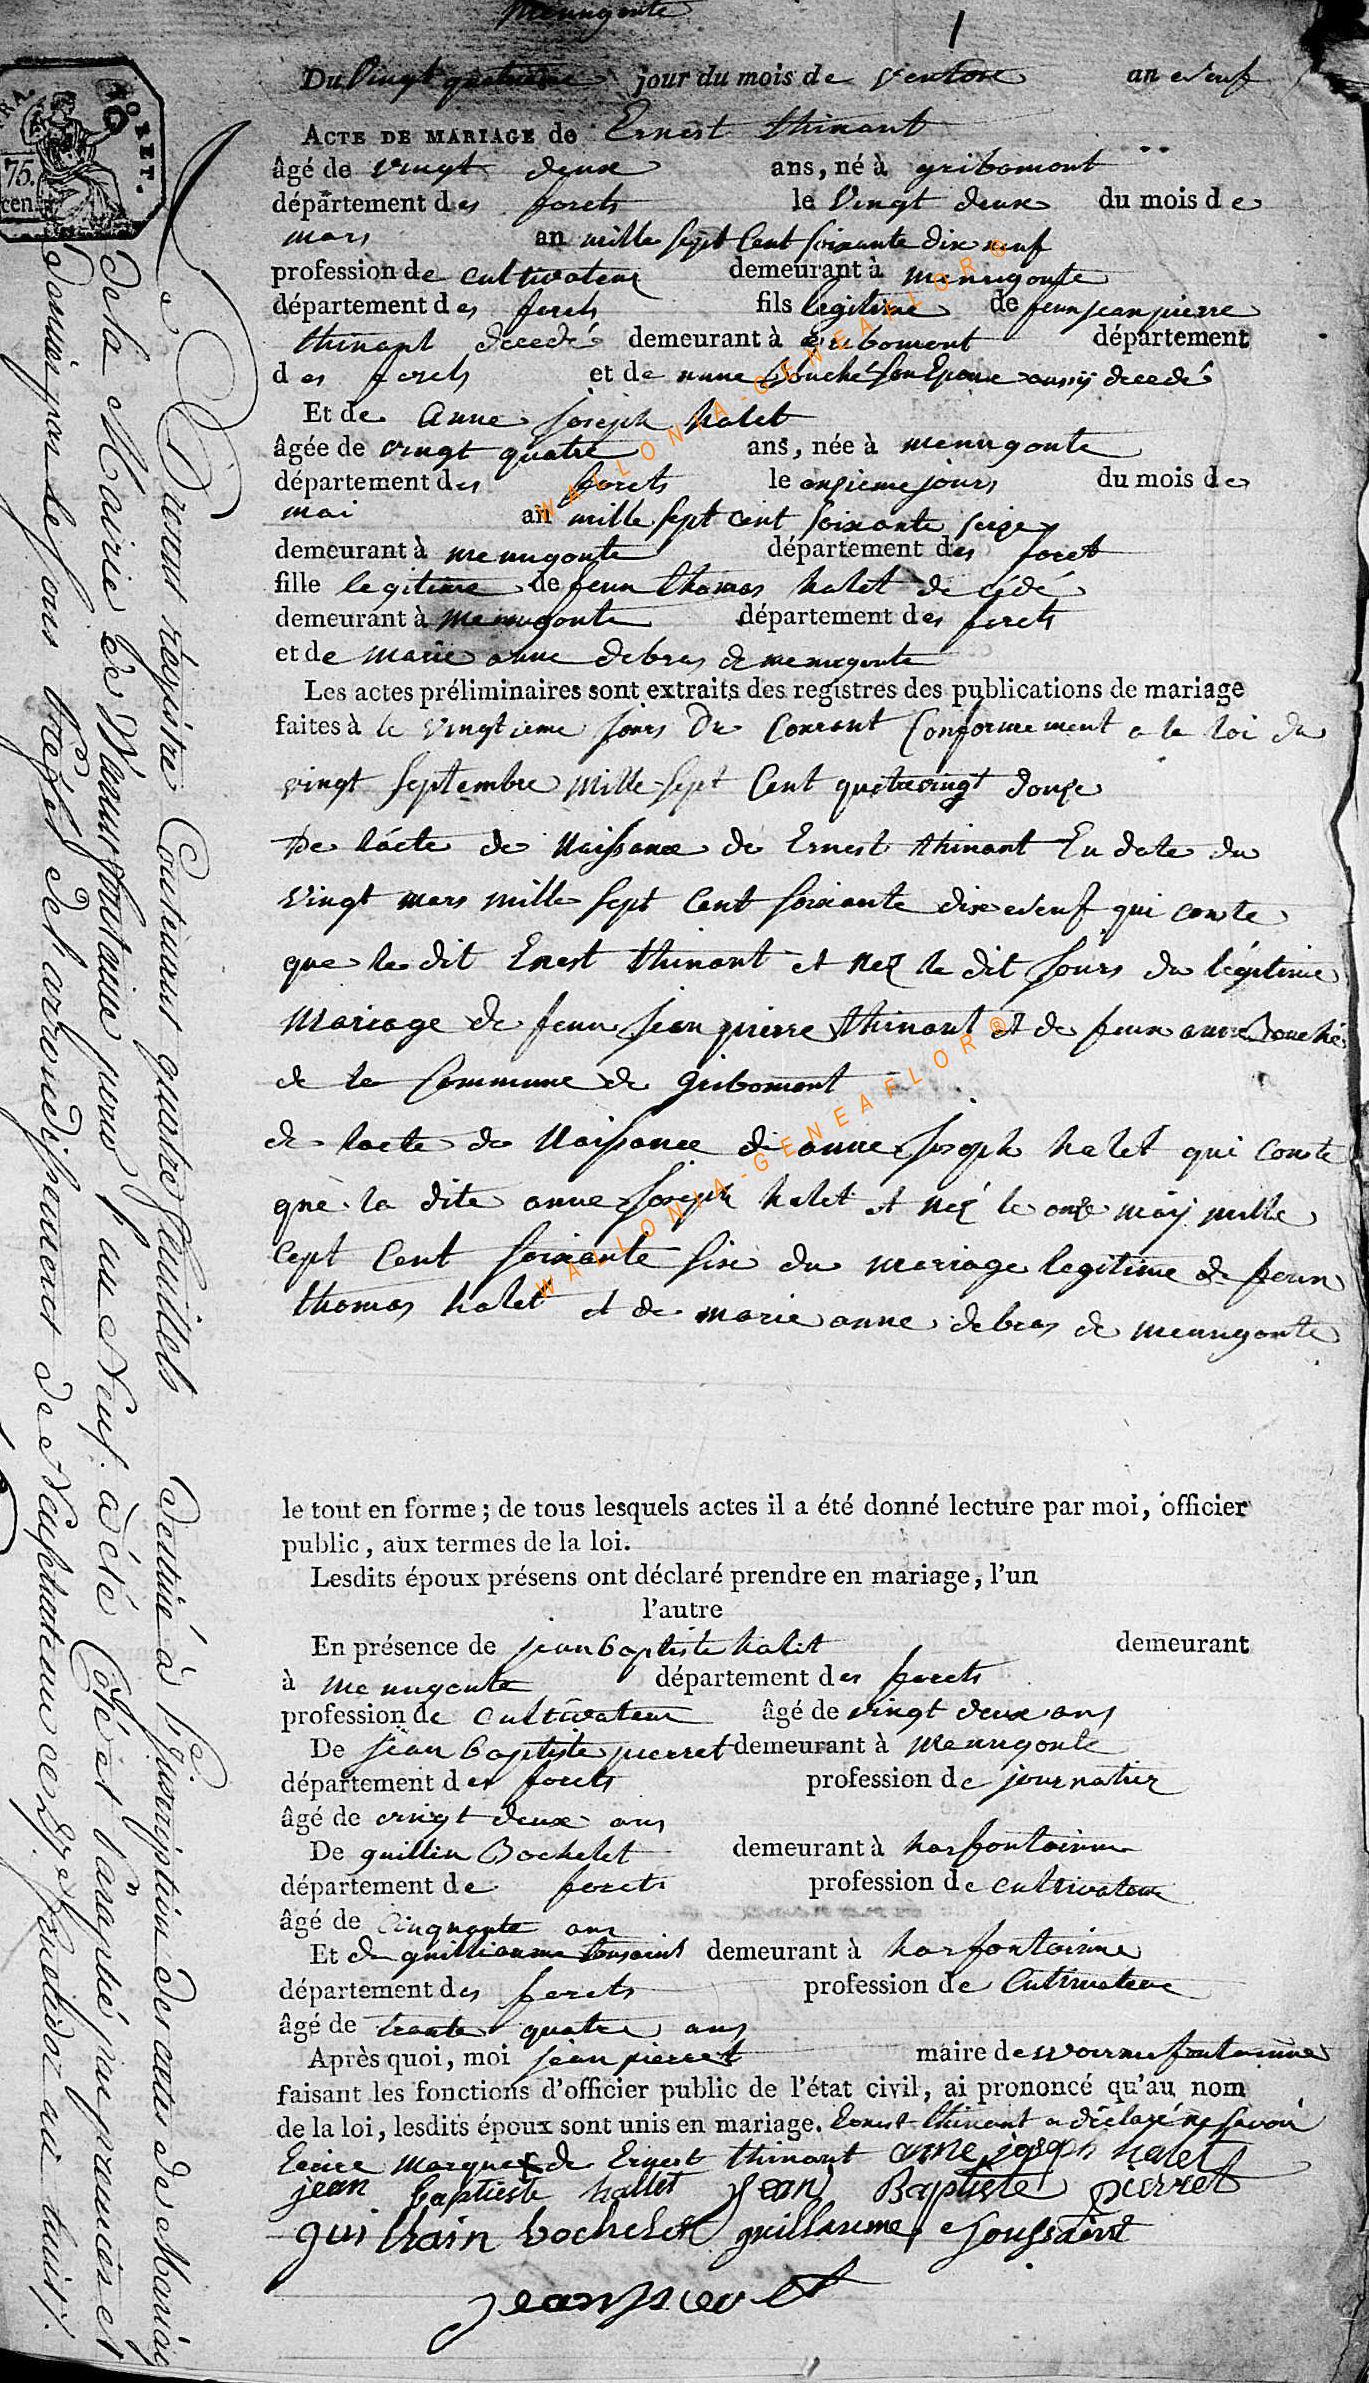 menugoute
1
75.
cen.
Du vingt quatrieme jour du mois de ventose an neuf
ACTE DE MARIAGE de Ernest thinant
âgé de vingt deux ans, né à gribomont
département des forets le vingt deux du mois de
mars an mille sept Cent soixante dix neuf
profession de cultivateur demeurant à menugoute
département des forets fils legitime de feux jean pierre
thinant decedé demeurant à gribomont département
des forets et de anne Bouché son Epouse aussÿ decedé
Et de Anne joseph halet
âgée de vingt quatre ans, née à menugoute
département des forets le onzieme jours du mois de
mai an mille sept cent soixante seize
demeurant à menugoute département des foret
fille legitime de feux thomas halet decédé
demeurant à menugoute département des forets
et de marie anne debras de menugoute
Les actes préliminaires sont extraits des registres des publications de mariage
faites à le vingtieme jours Du Courant Conformement a la loi du
vingt septembre mille sept Cent quatrevingt douze
De l'acte de Naissance de Ernest thinant En date du
vingt mars mille sept Cent soixante dix neuf qui conste
que le dit Ernest thinant et nez le dit jours du légitime
mariage de feux jean pierre thinant et de feux anne Bouché
de la Commune de gribomont
de lacte de Naissance de anne joseph halet qui conste
que la dite anne joseph halet et néz le onze may mille
cept Cent soixante sixe du mariage legitime de feux
thomas halet et de marie anne debras de menugoute
le tout en forme; de tous lesquels actes il a été donné lecture par moi, officier
public, aux termes de la loi.
Lesdits époux présens ont déclaré prendre en mariage, l'un
l'autre
En présence de jean baptiste halet demeurant
à menugoute département des forets
profession de cultivateur âgé de vingt deux ans
De jean baptiste pierret demeurant à menugoute
département des forets profession de journalier
âgé de vingt deux ans
De guillin Bochelet demeurant à harfontainne
département de forets profession de cultivateur
âgé de Cinquante ans
Et de guilliaume tousaint demeurant à harfontainne
département des forets profession de Cultivateur
âgé de trante quatre ans
Après quoi, moi jean pierret maire de warmifontainne
faisant les fonctions d'officier public de l'état civil, ai prononcé qu'au nom
de la loi, lesdits époux sont unis en mariage. Ernest thinant a déclaré ne savoir
Ecrire marque de Ernest thinant anne joseph halet
jean baptieste hallet jean Baptiste pierret
guilhain bochelet guillaume toussaint
jean pierret
Le Présent régistre Contenant quatre feuillets destiné à l'Inscription des actes de Mariage
de la Mairie de Warmifontaine pour l'an Neuf. à été Cotté et paraphé par premier et
dernier par le sous Préfet de l'arrondissement de Neufchateau ce
WALLONIA-GENEAFLOR®
WALLONIA-GENEAFLOR®